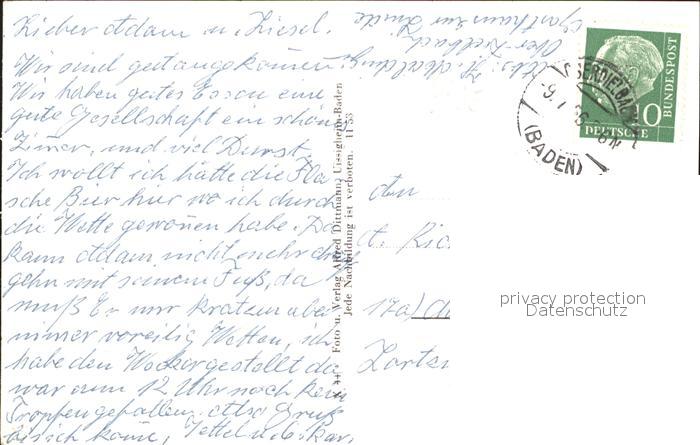 Lieber Adam u. Liesel.
Wir sind gut angekommen.
Wir haben gutes Essen eine
gute Gesellschaft ein schön
Zimer, und viel Durst
Ich wollt ich hätte die Fla
sche Bier hier wo ich durch
die Wette gewonen habe. Da
kann Adam nicht mehr
gehn mit seinem Fuß, da
muß Er nur kratzen aber
nimer voreilig Wetten, ich
habe den Wecker gestellt da
war um 12 Uhr noch kein
Tropfen gefallen. Also Gruß
bis ich kome,
Gasthaus zur Linde
Foto u. Verlag Alfred Dittmann, Uissigheim-Baden
Jede Nachbildung ist verboten. 11 53
DEUTSCHE
BUNDESPOST
10
(BADEN)
An
17a)
privacy protection
Datenschutz